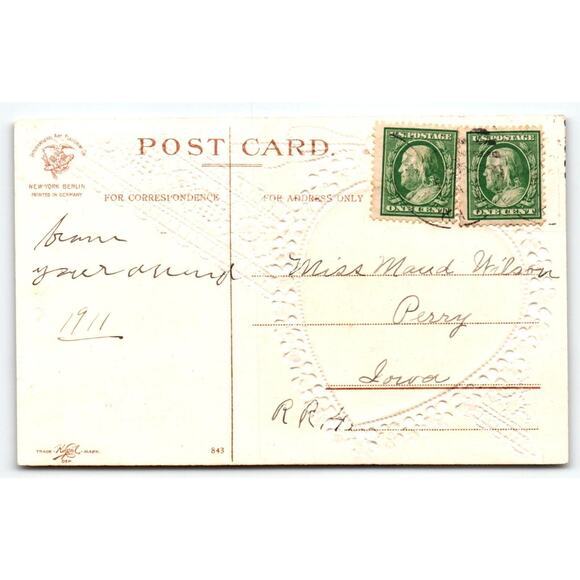 International Art Publishing Co.
NEW-YORK BERLIN
PRINTED IN GERMANY
POST CARD.
FOR CORRESPONDENCE
FOR ADDRESS ONLY
U.S. POSTAGE
ONE CENT
U.S. POSTAGE
ONE CENT
from
your
1911
Miss Maud Wilson
Perry
Iowa
R R. 4.
TRADE - MARK.
DEP.
843